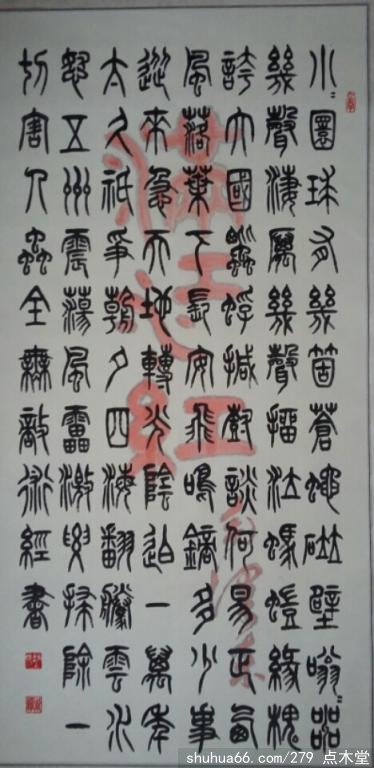 小〻圜球有幾箇蒼蠅碰壁嗡〻叫
幾聲淒厲幾聲抽泣螞螘緣槐
誇大國蚍蜉撼樹談何易正西
風落葉下長安飛鳴鏑多少事
從來急天地轉光陰迫一萬年
太久祇爭朝夕四海翻騰雲水
怒五州震蕩風雷激要掃除一
切害人蟲全無敵術經書
滿江紅
毛澤東
shuhua66.com/279 点木堂